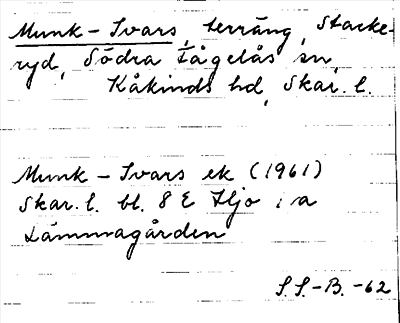 Munk-Ivars, terräng, Stacke-
ryd, Södra Fågelås sn,
Kåkinds hd, Skar. l.
Munk-Ivars ek (1961)
Skar. l. bl. 8 E Hjo i a
Lämmagården
S.S.-B.-62